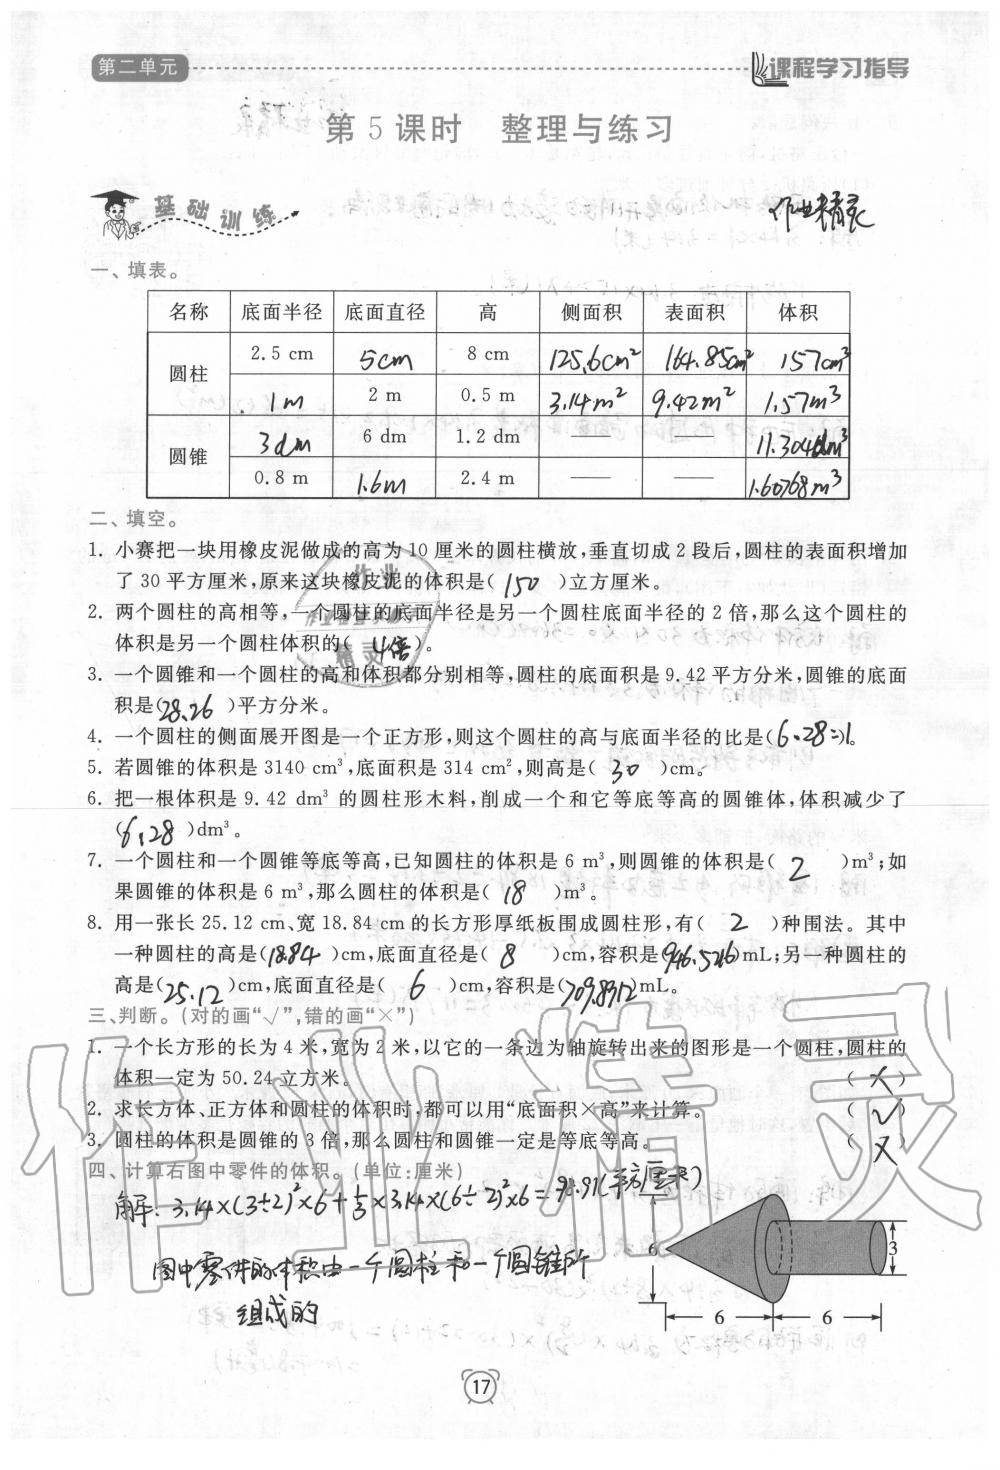 第二单元
课程学习指导
第 5 课时　整理与练习
基础训练
作业精灵
一、填表。
名称 底面半径 底面直径 高 侧面积 表面积 体积
圆柱 2.5 cm 5cm 8 cm 125.6cm² 164.85cm² 157cm³
1m 2 m 0.5 m 3.14m² 9.42m² 1.57m³
圆锥 3dm 6 dm 1.2 dm —— —— 11.304dm³
0.8 m 1.6m 2.4 m —— —— 1.60768m³
二、填空。
1. 小赛把一块用橡皮泥做成的高为10厘米的圆柱横放,垂直切成2段后,圆柱的表面积增加
了30平方厘米,原来这块橡皮泥的体积是( 150 )立方厘米。
2. 两个圆柱的高相等,一个圆柱的底面半径是另一个圆柱底面半径的2倍,那么这个圆柱的
体积是另一个圆柱体积的( 4倍 )。
3. 一个圆锥和一个圆柱的高和体积都分别相等,圆柱的底面积是9.42平方分米,圆锥的底面
积是( 28.26 )平方分米。
4. 一个圆柱的侧面展开图是一个正方形,则这个圆柱的高与底面半径的比是( 6.28:1 )。
5. 若圆锥的体积是3140 cm³,底面积是314 cm²,则高是( 30 )cm。
6. 把一根体积是9.42 dm³的圆柱形木料,削成一个和它等底等高的圆锥体,体积减少了
( 6.28 )dm³。
7. 一个圆柱和一个圆锥等底等高,已知圆柱的体积是6 m³,则圆锥的体积是( 2 )m³;如
果圆锥的体积是6 m³,那么圆柱的体积是( 18 )m³。
8. 用一张长25.12 cm、宽18.84 cm的长方形厚纸板围成圆柱形,有( 2 )种围法。其中
一种圆柱的高是( 18.84 )cm,底面直径是( 8 )cm,容积是( 946.5216 )mL;另一种圆柱的
高是( 25.12 )cm,底面直径是( 6 )cm,容积是( 709.8912 )mL。
三、判断。(对的画“√”,错的画“×”)
1. 一个长方形的长为4米,宽为2米,以它的一条边为轴旋转出来的图形是一个圆柱,圆柱的
体积一定为50.24立方米。 ( × )
2. 求长方体、正方体和圆柱的体积时,都可以用“底面积×高”来计算。 ( √ )
3. 圆柱的体积是圆锥的3倍,那么圆柱和圆锥一定是等底等高。 ( × )
四、计算右图中零件的体积。(单位:厘米)
解: 3.14×(3÷2)²×6+1/3×3.14×(6÷2)²×6=98.91(平方厘米)
图中零件的体积由一个圆柱和一个圆锥所
组成的
6
3
6 6
17
作业精灵